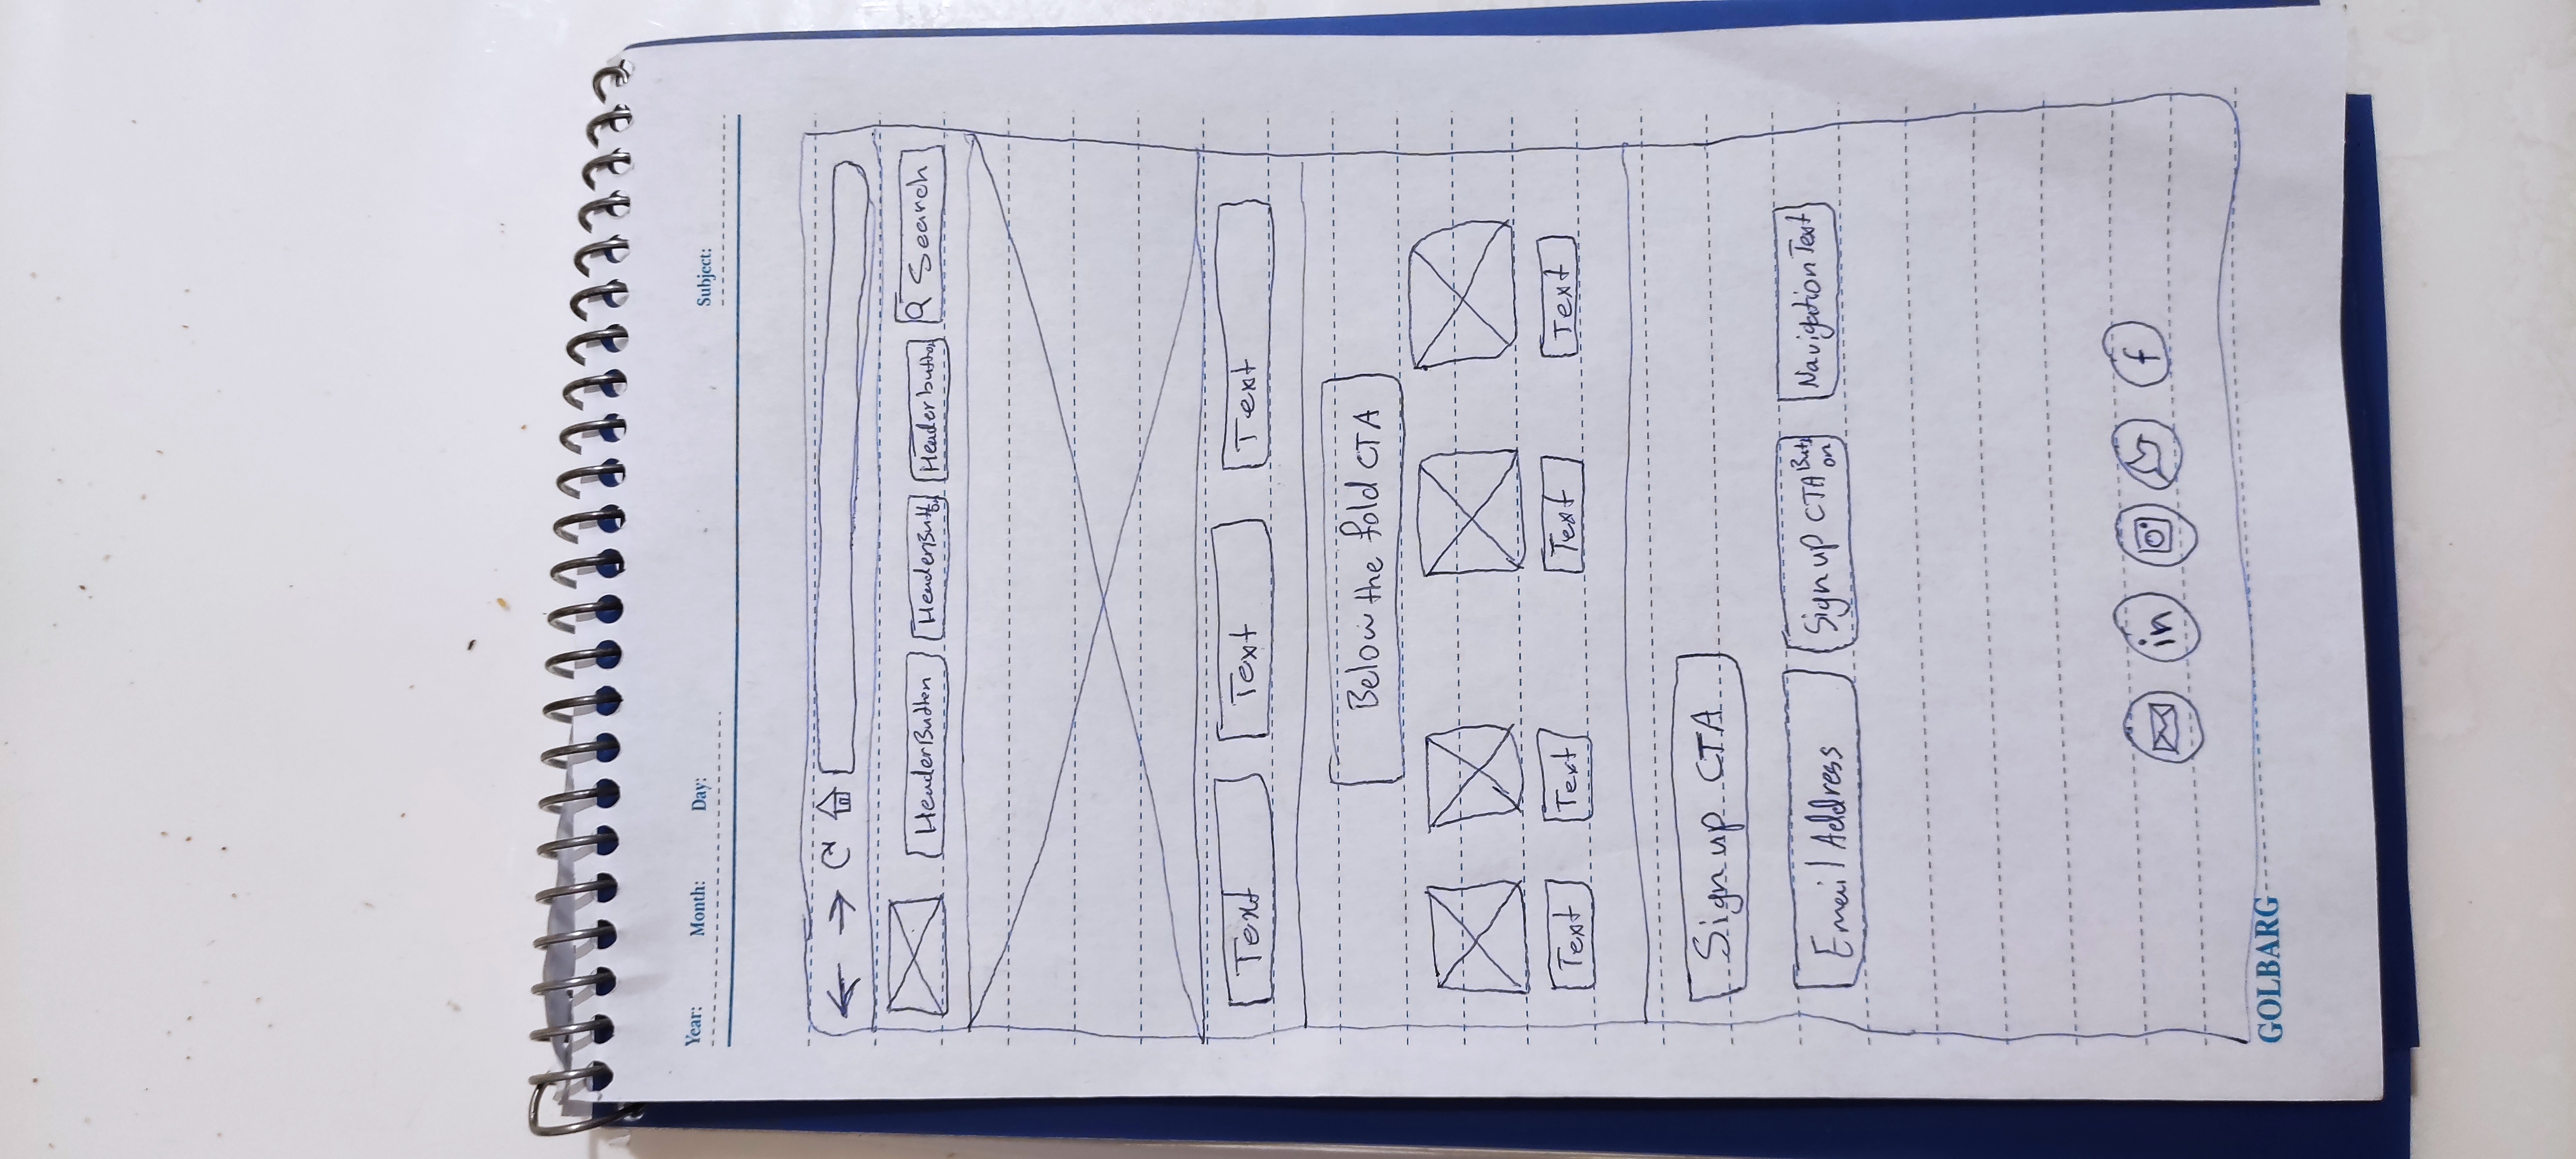 Year: Month: Day: Subject:
Header Button Header Button Header button Search
Text Text Text
Below the fold CTA
Text Text Text Text
Sign up CTA
Email Address Sign up CTA Button Navigation Text
in f
GOLBARG